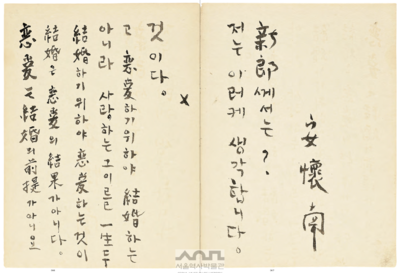 戀愛는 結婚의 前提가아니요
結婚은 戀愛의 結果가아니다。
結婚하기위하야 戀愛하는것이
아니라 사랑하는그이를 一生두
고 戀愛하기위하야 結婚하는
것이다。
x
저는 이러케 생각합니다。
新郎께서는?
安懷南
서울역사박물관